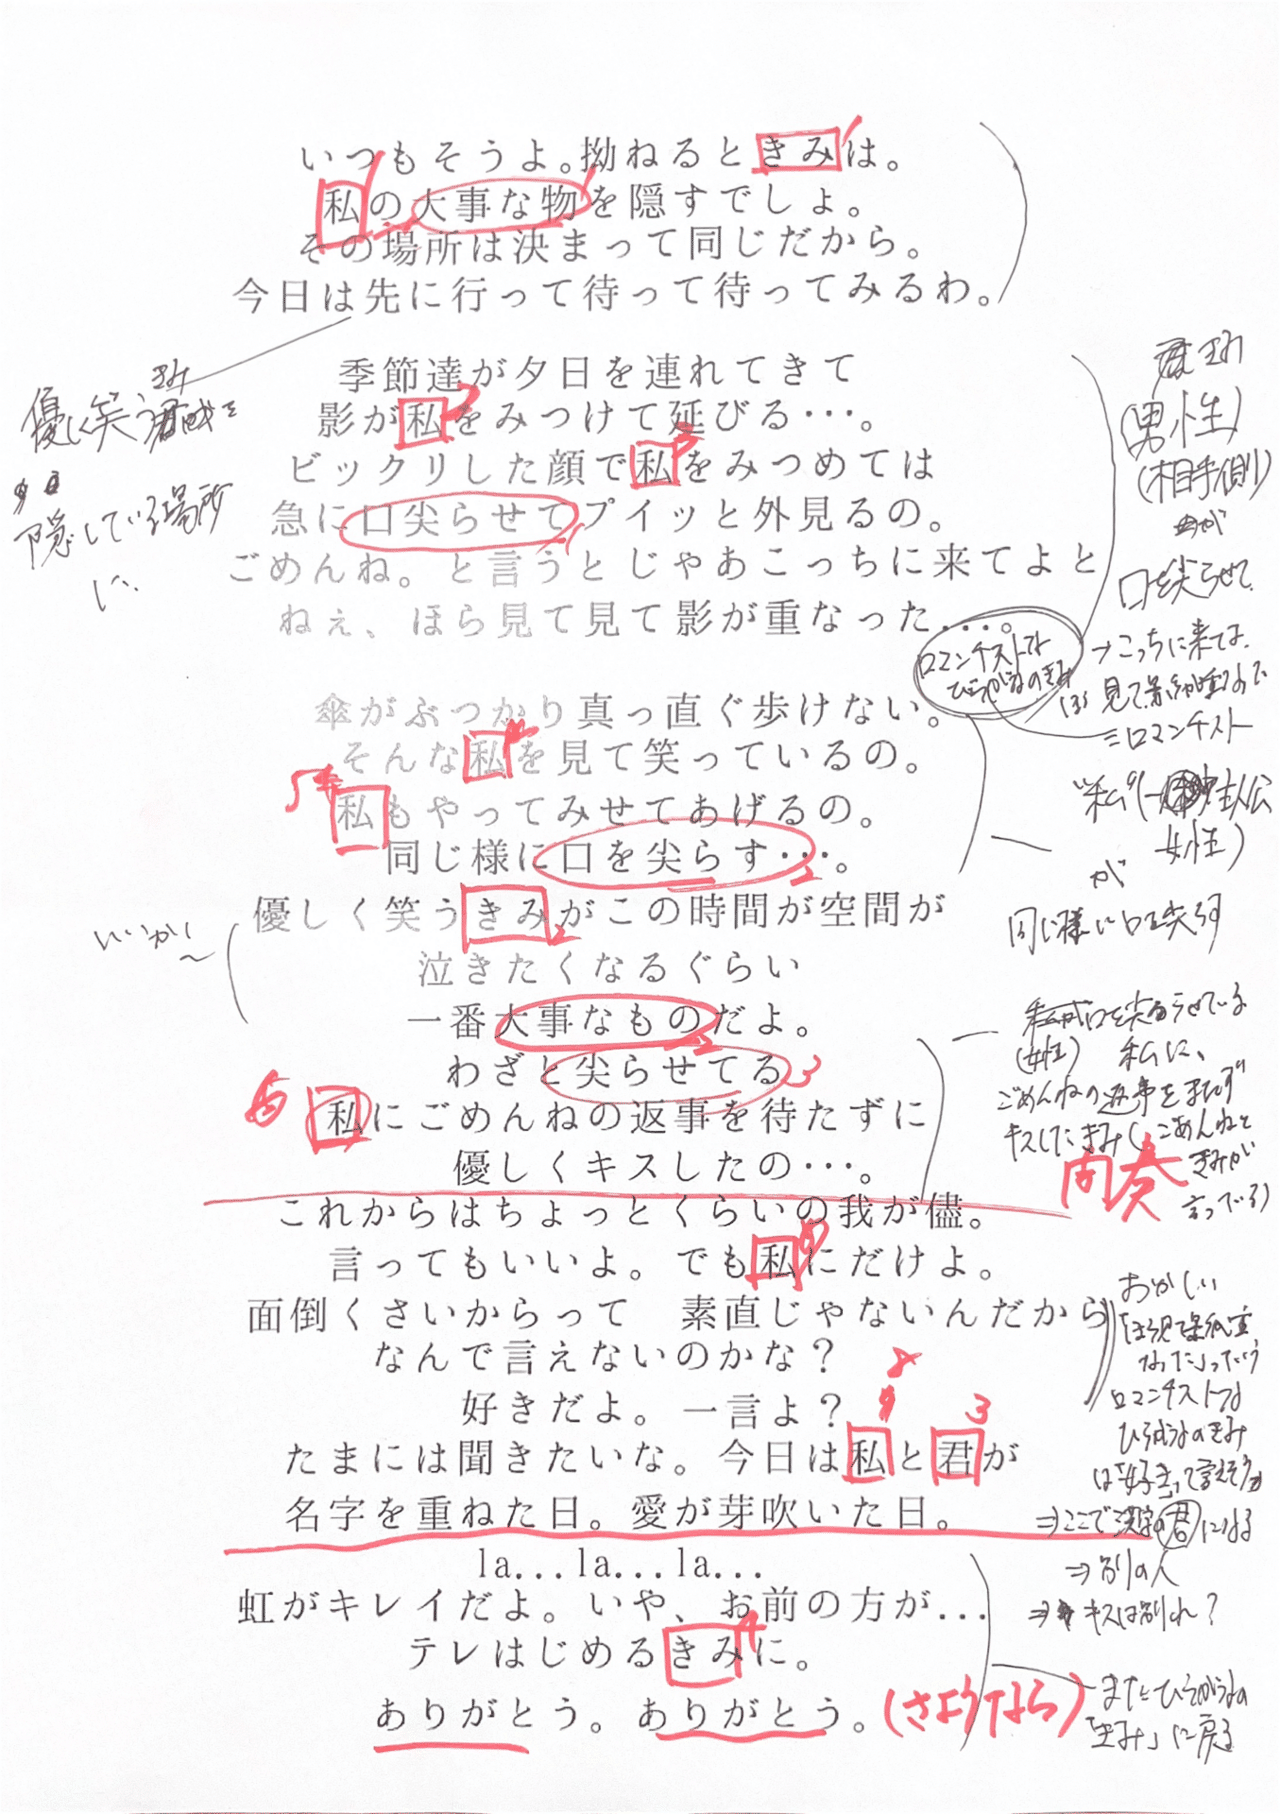 いつもそうよ。拗ねるときみは。
私の大事な物を隠すでしょ。
その場所は決まって同じだから。
今日は先に行って待って待ってみるわ。
季節達が夕日を連れてきて
影が私をみつけて延びる・・・。
ビックリした顔で私をみつめては
急に口尖らせてプイッと外見るの。
ごめんね。と言うとじゃあこっちに来てよと
ねぇ、ほら見て見て影が重なった...。
傘がぶつかり真っ直ぐ歩けない。
そんな私を見て笑っているの。
私もやってみせてあげるの。
同じ様に口を尖らす・・・。
優しく笑うきみがこの時間が空間が
泣きたくなるぐらい
一番大事なものだよ。
わざと尖らせてる
私にごめんねの返事を待たずに
優しくキスしたの・・・。
これからはちょっとくらいの我が儘。
言ってもいいよ。でも私にだけよ。
面倒くさいからって　素直じゃないんだから
なんで言えないのかな？
好きだよ。一言よ？
たまには聞きたいな。今日は私と君が
名字を重ねた日。愛が芽吹いた日。
la...la...la...
虹がキレイだよ。いや、お前の方が...
テレはじめるきみに。
ありがとう。ありがとう。
(さようなら)
優しく笑う
隠している場所
に、
(男性)
(相手側)
が
口を尖らせて、
→こっちに来てよ、
=ロマンチスト
ロマンチストで
ひらがなのきみ
主人公
女性)
が
同じ様に口を尖らす
(女性)　私に、
ごめんねの返事をまたず
キスしたきみ(ごめんねと
きみが
言っている)
間奏
おかしい
ロマンチストな
ひらがなのきみ
⇒ここで漢字の君になる
⇒別の人
キスは別れ？
またひらがなの
「きみ」に戻る
1
1
1
2
3
1
5
2
2
2
3
6
8
3
4